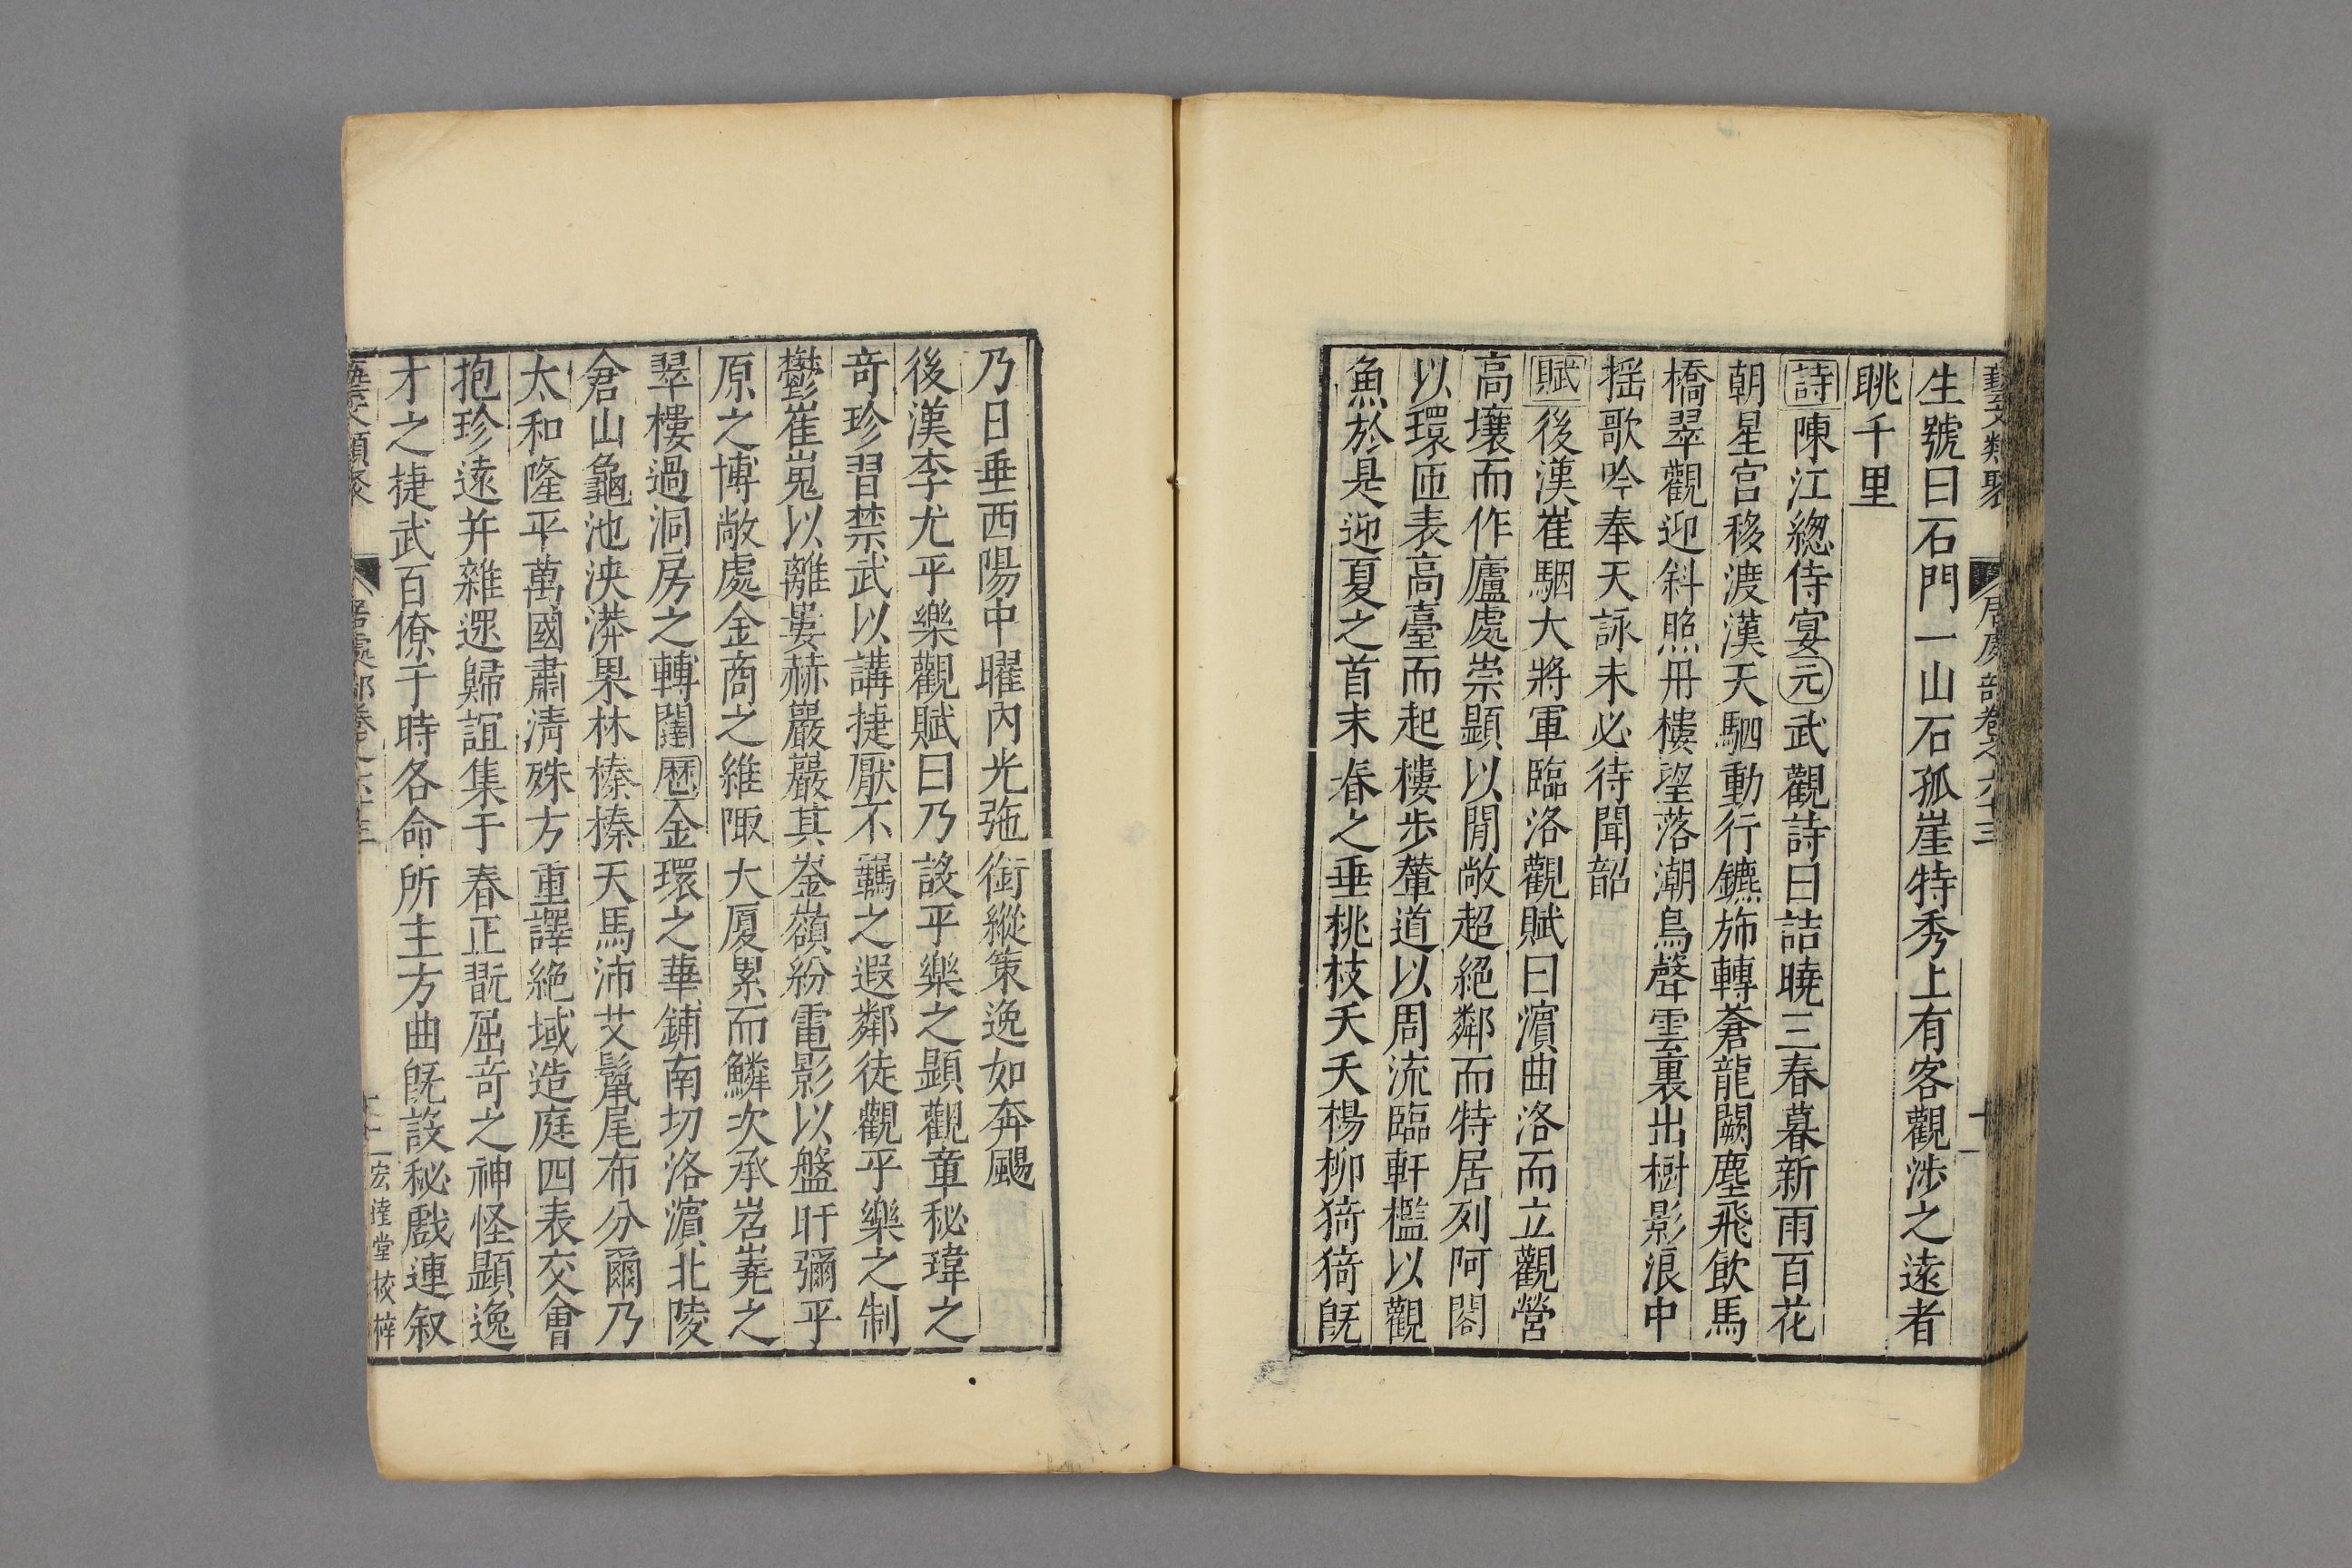 藝文類聚 居處部卷之六十三 十一
生號曰石門一山石孤崖特秀上有客觀涉之遠者
眺千里
詩陳江總侍宴元武觀詩曰詰曉三春暮新雨百花
朝星宫移渡漢天駟動行鑣斾轉蒼龍闕塵飛飲馬
橋翠觀迎斜照丹樓望落潮鳥聲雲裏出樹影浪中
揺歌吟奉天詠未必待聞韶
賦後漢崔駰大將軍臨洛觀賦曰濵曲洛而立觀營
高壤而作廬處崇顯以閒敞超絕鄰而特居列阿閣
以環匝表高臺而起樓步輦道以周流臨軒檻以觀
魚於是迎夏之首末春之垂桃枝夭夭楊柳猗猗旣
乃日垂西陽中曜內光弛銜縱策逸如奔颺
後漢李尤平樂觀賦曰乃設平樂之顯觀章秘瑋之
奇珍習禁武以講捷厭不羈之遐鄰徒觀平樂之制
鬱崔嵬以離婁赫巖巖其崟嶺紛電影以盤盱彌平
原之博敞處金商之維陬大厦累而鱗次承岧嶤之
翠樓過洞房之轉闥歴金環之華鋪南切洛濵北陵
倉山龜池泱漭果林榛榛天馬沛艾鬣尾布分爾乃
太和隆平萬國肅淸殊方重譯絶域造庭四表交會
抱珍遠并雜遝歸誼集于春正翫屈奇之神怪顯逸
才之捷武百僚于時各命所主方曲旣設秘戲連叙
藝文類聚 居處部卷之六十三 十二 宏達堂校梓